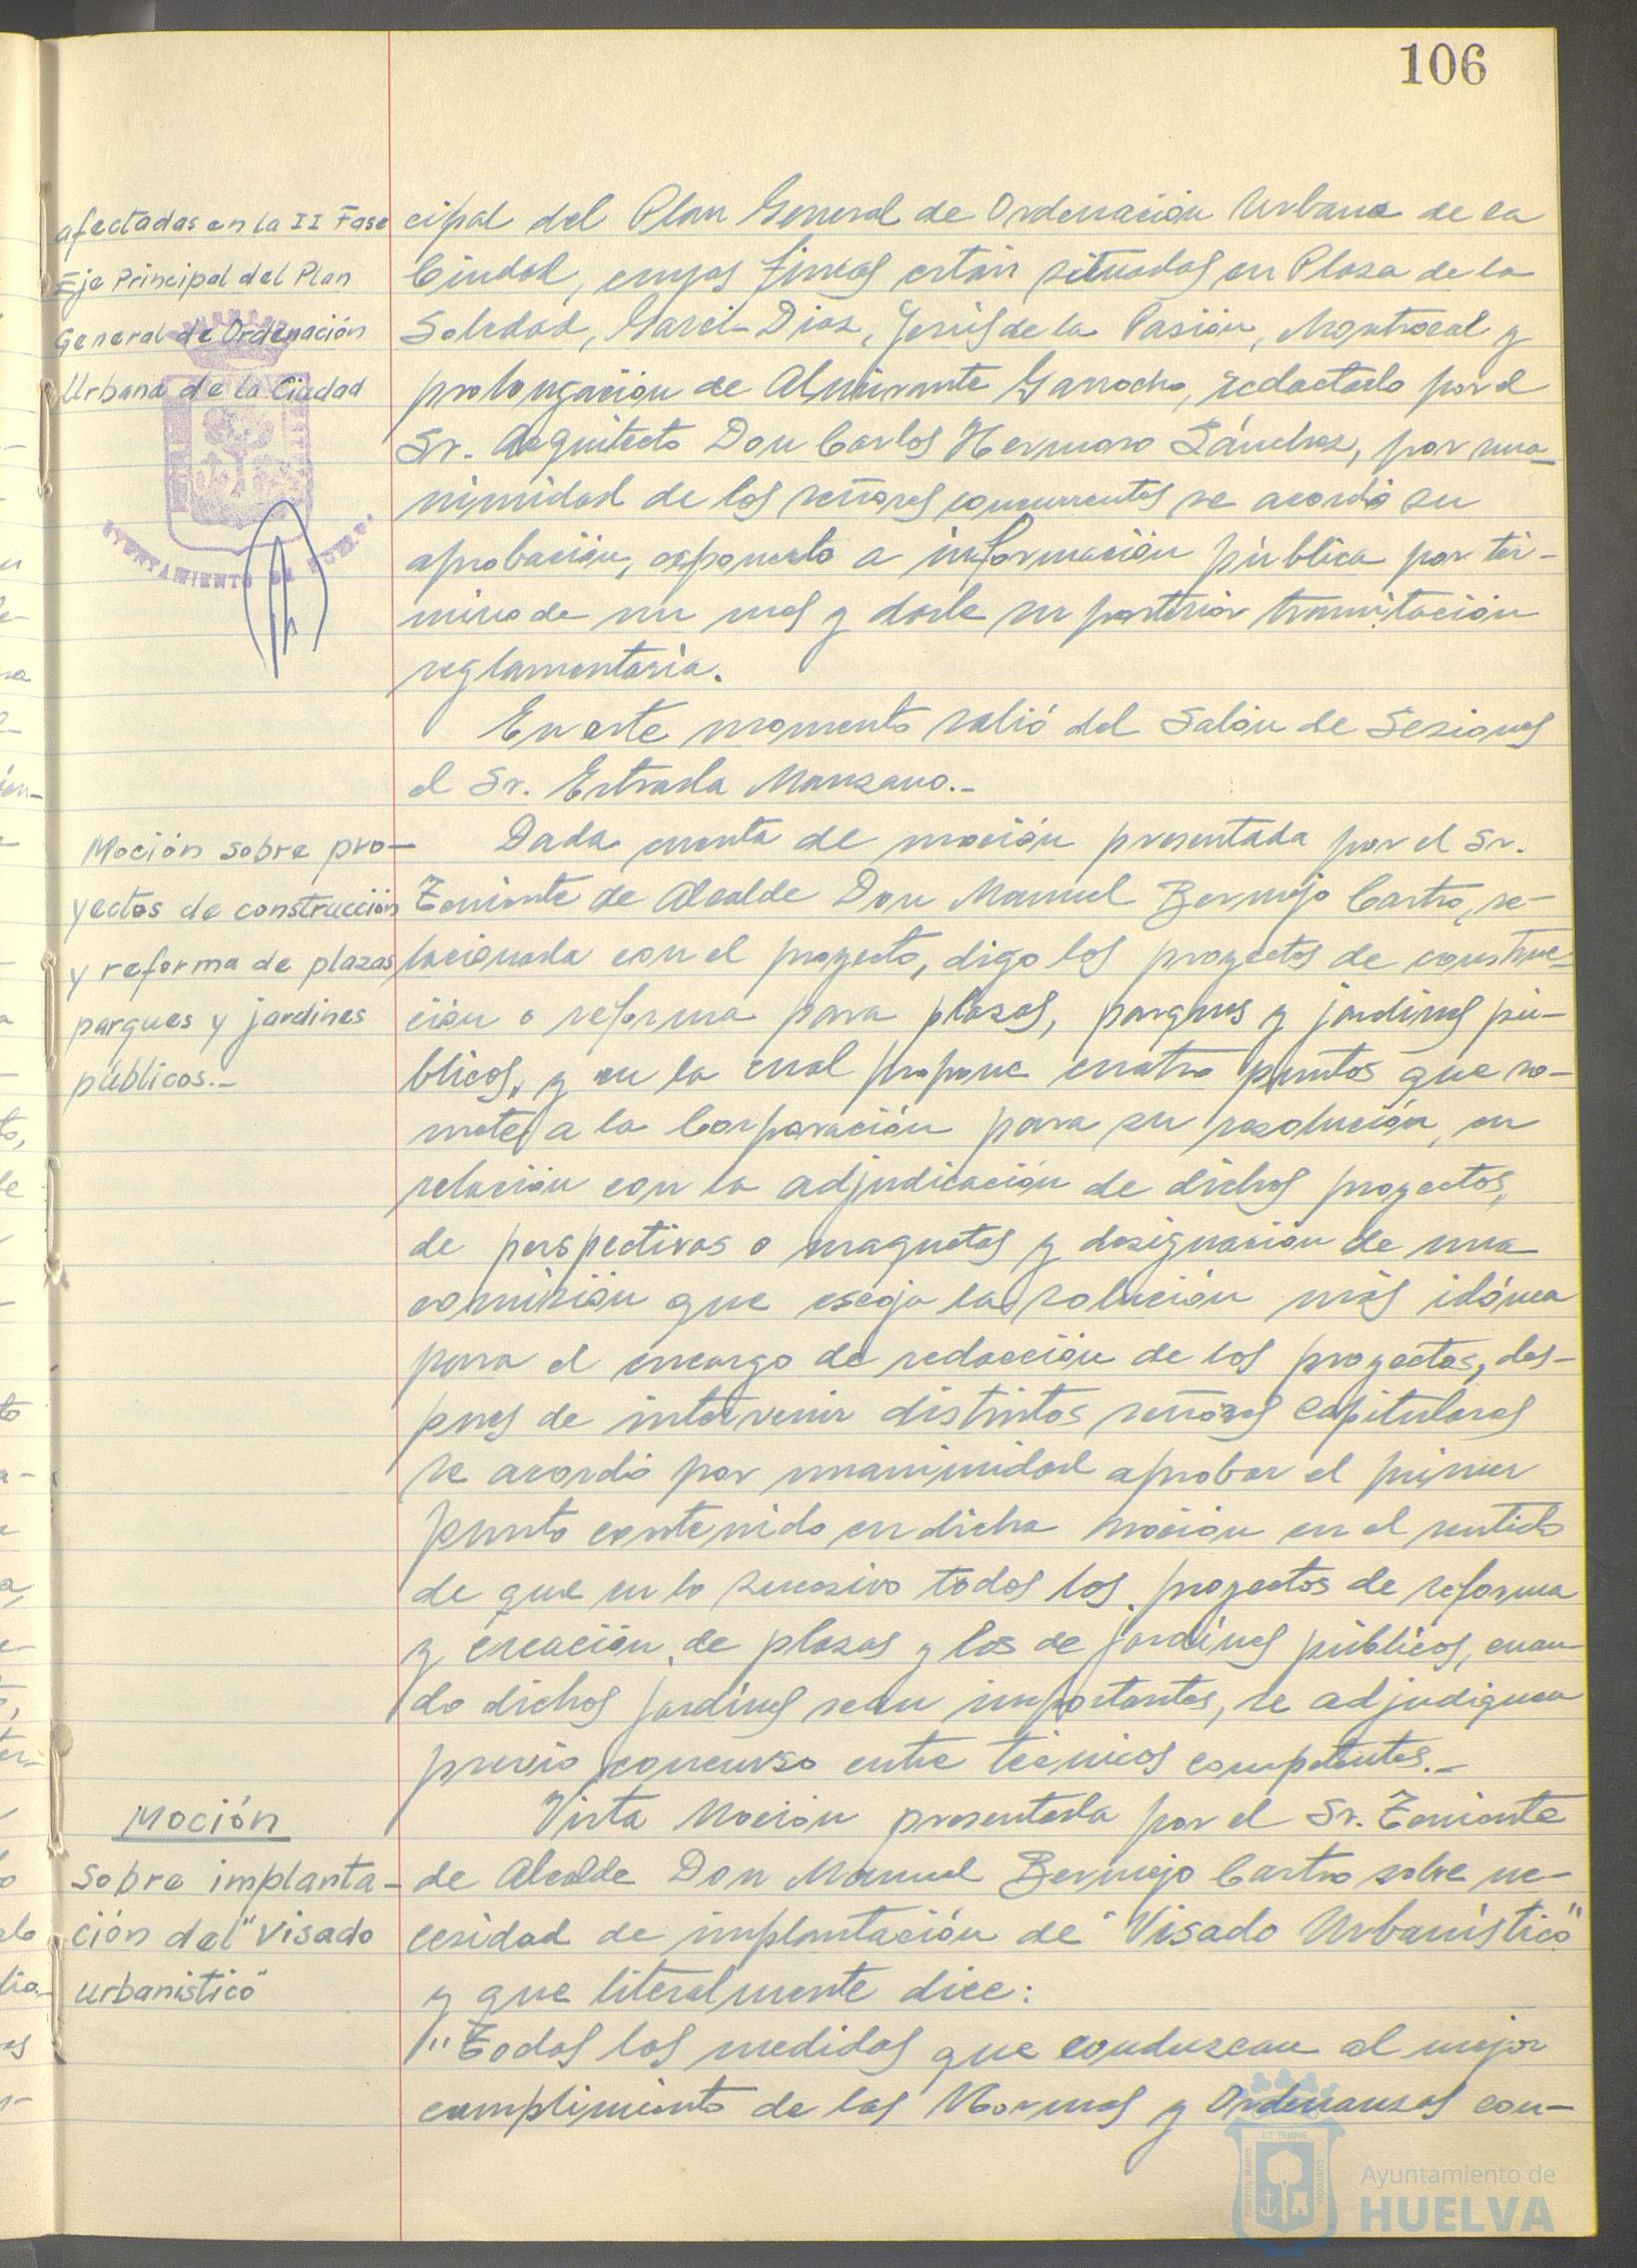 106
afectadas en la II Fase
Eje Principal del Plan
General de Ordenación
Urbana de la Ciudad
AYUNTAMIENTO DE HUELVA
cipal del Plan General de Ordenación Urbana de la
Ciudad, cuyas fincas están situadas en Plaza de la
Soledad, Garci-Diaz, Jesús de la Pasión, Montrocal y
prolongación de Almirante Garrocho, redactado por el
Sr. Arquitecto Don Carlos Hermoso Sánchez, por una-
nimidad de los señores concurrentes se acordó su
aprobación, exponerlo a información pública por tér-
mino de un mes y darle su posterior tramitación
reglamentaria.
En este momento salió del Salón de Sesiones
el Sr. Estrada Manzano.-
Moción sobre pro-
yectos de construcción
y reforma de plazas,
parques y jardines
públicos.-
Dada cuenta de moción presentada por el Sr.
Teniente de Alcalde Don Manuel Bermejo Castro, re-
lacionada con el proyecto, digo los proyectos de construc-
ción o reforma para plazas, parques y jardines pú-
blicos, y en la cual propone cuatro puntos que so-
mete a la Corporación para su resolución, en
relación con la adjudicación de dichos proyectos,
de perspectivas o maquetas y designación de una
comisión que escoja la solución más idónea
para el encargo de redacción de los proyectos, des-
pues de intervenir distintos señores Capitulares
se acordó por unanimidad aprobar el primer
punto contenido en dicha moción en el sentido
de que en lo sucesivo todos los proyectos de reforma
y creación de plazas y los de jardines públicos, cuan-
do dichos jardines sean importantes, se adjudiquen
previo concurso entre técnicos competentes.-
Moción
sobre implanta-
ción del "Visado
urbanistico"
Vista Moción presentada por el Sr. Teniente
de Alcalde Don Manuel Bermejo Castro sobre ne-
cesidad de implantación de "Visado Urbanístico"
y que literalmente dice:
"Todas las medidas que conduzcan al mejor
cumplimiento de las Normas y Ordenanzas con-
Ayuntamiento de
HUELVA